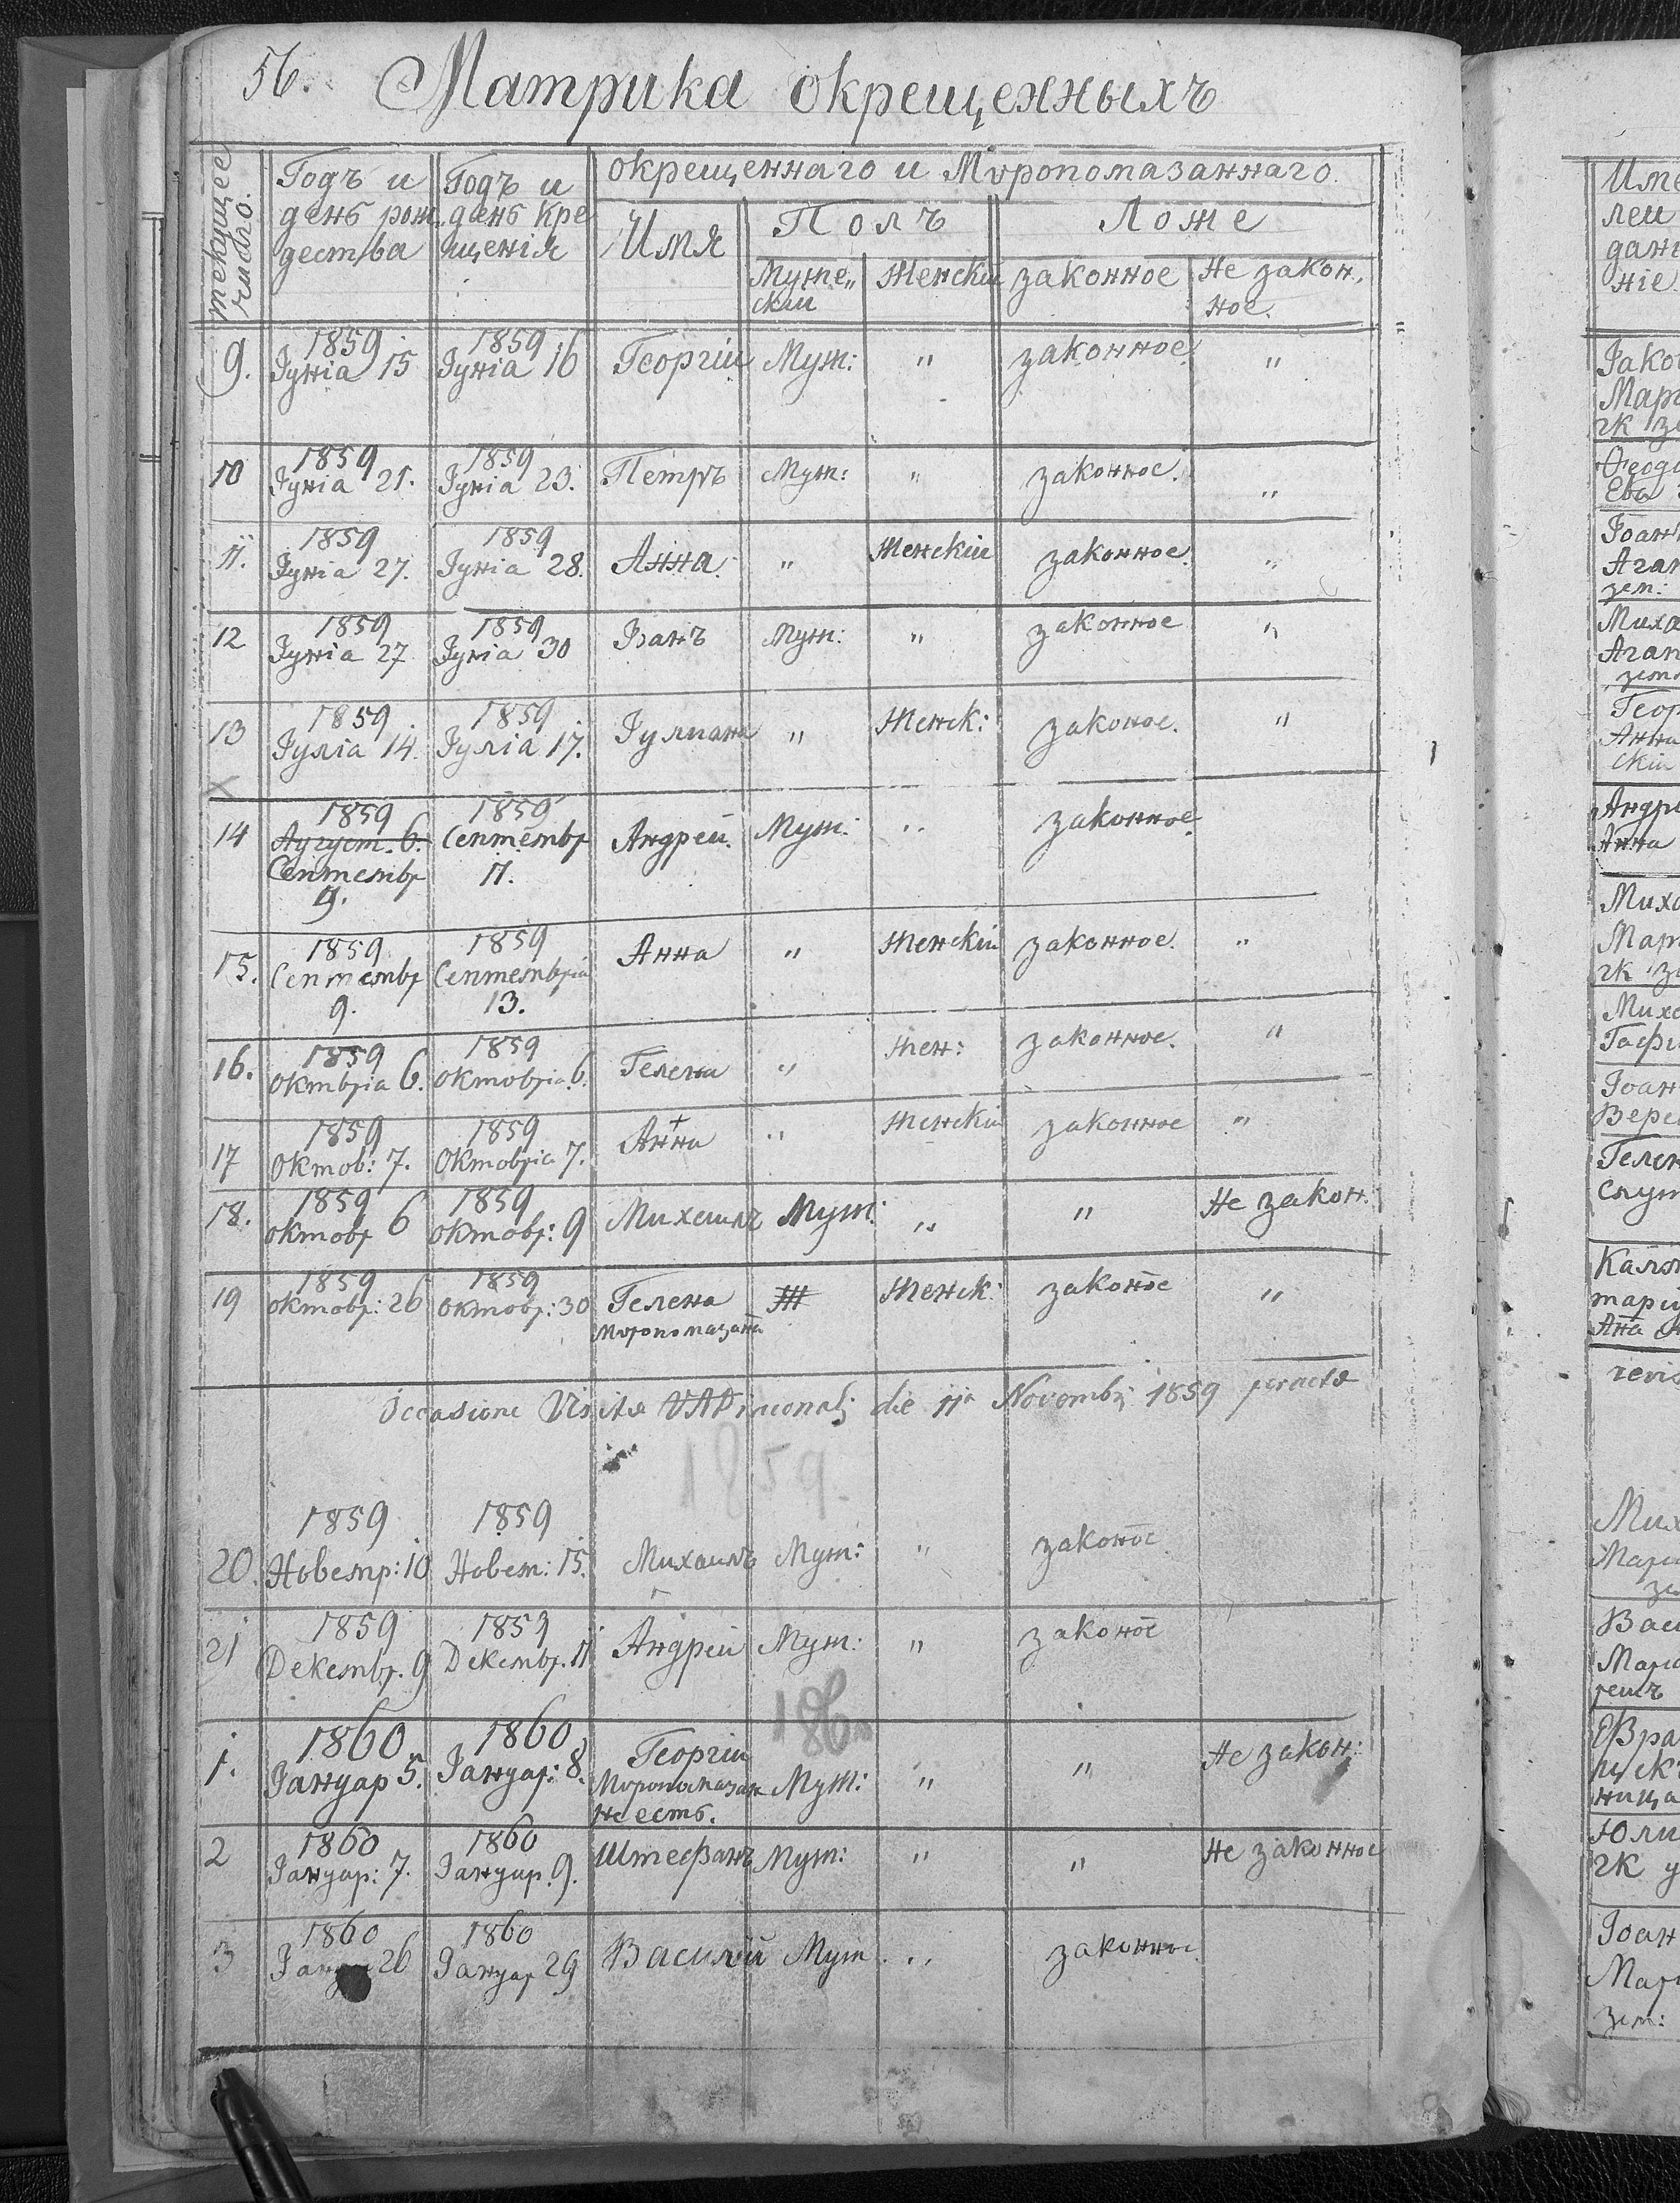 56. Матрика окрещенныхъ
текущее число.
Годъ и день рож дества
Годъ и день кре щенія
окрещеннаго и Мѵропомазаннаго.
Имя
Полъ
Ложе
Муже„ скій
Женскій
законное
Не закон, ное.
9. 1859 Іунія 15 1859 Іунія 16 Георгій Муж: " законное "
10 1859 Іунія 21. 1859 Іунія 23. Петръ Муж: " законное. "
11. 1859 Іунія 27. 1859 Іунія 28. Анна " Женскій законное. "
12 1859 Іунія 27 1859 Іунія 30 Іванъ Муж: " законное "
13 1859 Іулія 14. 1859 Іулія 17. Іулиана " Женск: законое. "
14 1859 Аугуст. 6. Септембр 9. 1859 Септембр 11. Андрей. Муж: " законное.
15. 1859 Септембр 9. 1859 Септембрія 13. Анна " Женскій законное. "
16. 1859 Октбрія 6. 1859 Октобрія 6. Гелена " Жен: законное. "
17 1859 Октоб: 7. 1859 Октобрія 7. Анна " Женскій законное "
18. 1859 октобр 6 1859 октобр: 9 Михаилъ Муж: " " Не закон.
19 1859 октобр: 26 1859 Октобр: 30 Гелена Мѵропомазана Ж Женск: законое "
Occasione Visitæ VADiaconal; die 11a Novembr 1859 peractæ
1859.
20. 1859 Новемр: 10 1859 Новем: 15. Михаилъ Муж: " законое.
21 1859 Декембр. 9 1859 Декембр. 11 Андрей Муж: " законое
1860
1. 1860 Іануар 5. 1860 Іануар: 8. Георгій Мѵропомазан не естъ. Муж: " " Не закон:
2 1860 Іануар: 7. 1860 Іануар. 9. Штефанъ Муж: " " Не законное
3 1860 26 1860 Іануар 29 Василій Муж " законное
Іако
Мар
гк
Ева
Іоан
Агап
зем:
Миха
Агап
Геор
Анна
скій
Андре
Анна
Миха
Мар
гк
Миха
Іоан
Вере
Гелен
Мих
Мари
Васи
Мари
Іоан
Мар
зем: